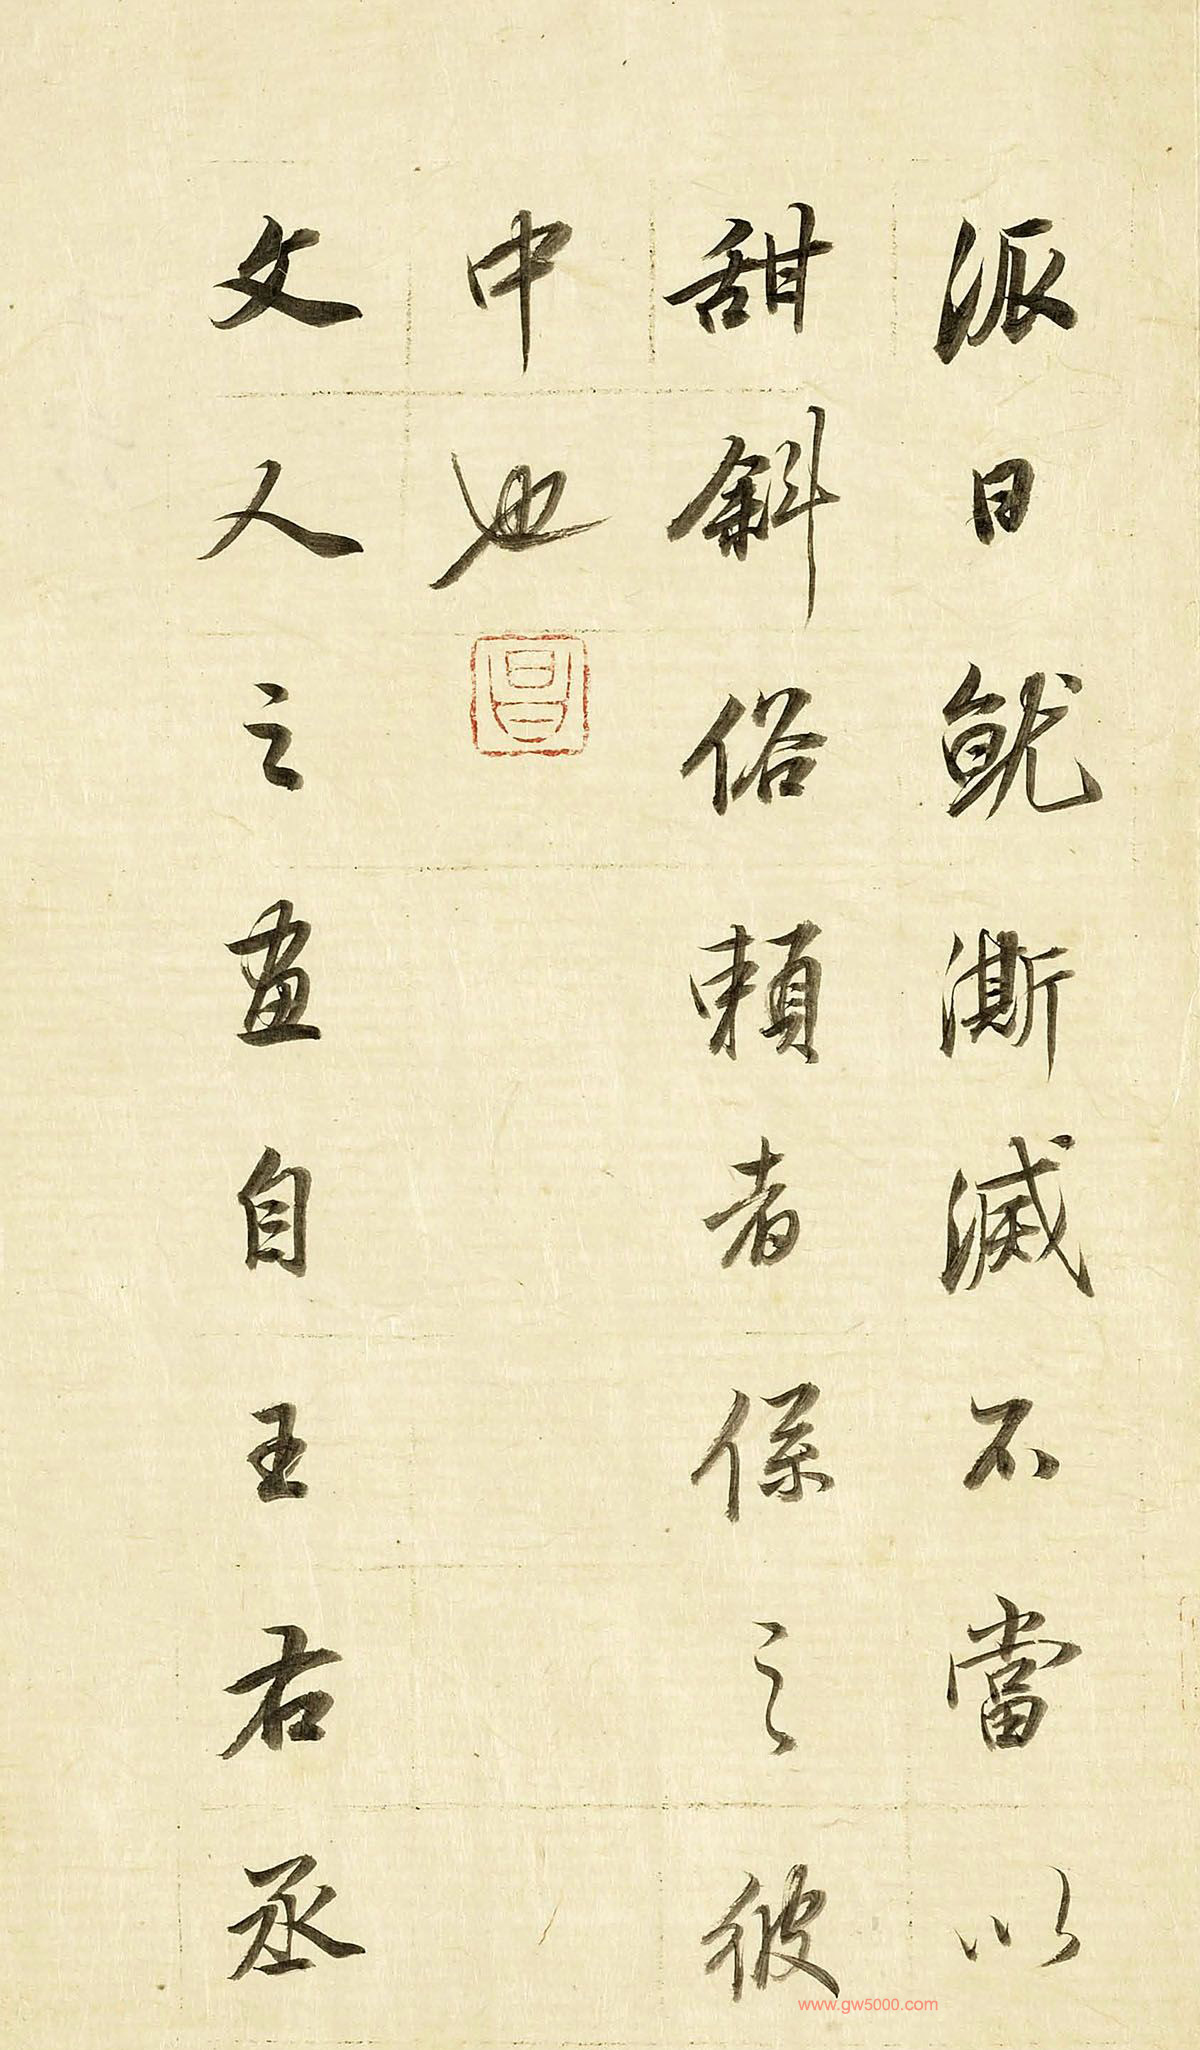 派日就澌滅不當以
甜斜俗頼者係之彼
中也
昌
文人之畫自王右丞
www.gw5000.com